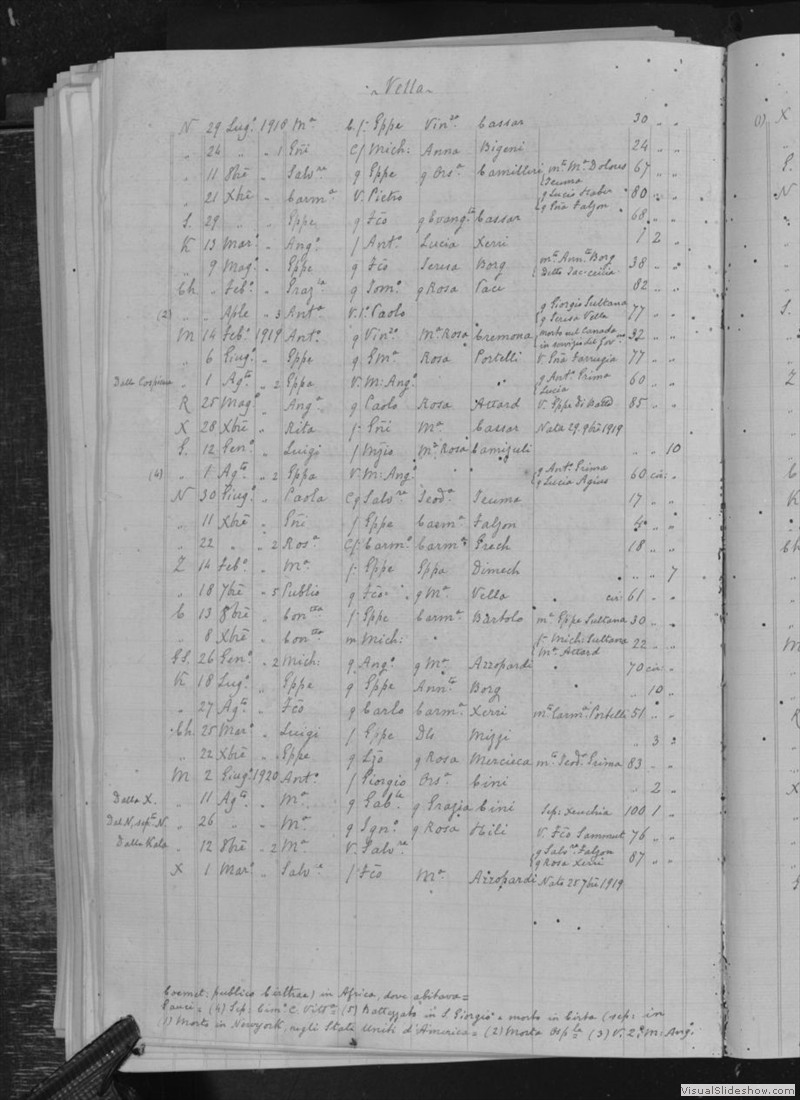 Vella
N 29 Lug.º 1918 M.ª C. f. Eppe Vin.zo Cassar 30 " "
" 24 " " 1 Gñi C/ Mich: Anna Bigeni 24 " "
" 11 8bre " Salv.re g Eppe g Ors.ª Camilleri m.ª M.ª Dolores 67 "
Teuma
" 21 Xbre " Carm.ª V. Pietro g Lucio 80 " "
g Falzon
S. 29 " " Eppe g Fco g Evang.ta Cassar 68 " "
K 13 Mar.º " Ang.º f Ant.º Lucia Xerri 1 2 "
" 9 Mag.º " Eppe g Fco Teresa Borg m.ª Ann.ta Borg 38 " "
Ch " Feb.º " Graz.la g Tom.º g Rosa Pace 82 " "
(2) " " Aple " 3 Ant.ª V. 1.º Paolo g Giorgio Sultana 77 " "
g Teresa Vella
M 14 Feb.º 1919 Ant.º g Vin.zo M.ª Rosa Cremona morto nel Canada 32 " "
in servizio del Gov.
" 6 Giug.º " Eppe g G.M.ª Rosa Portelli V. Farrugia 77 " "
Dalla Cospicua " 1 Ag.to " 2 Eppa V. M: Ang.º g Ant.º Prima 60 " "
Lucia
R 25 Mag.º " Ang.ª g Paolo Rosa Attard V. Eppe 85 " "
X 28 Xbre " Rita f. Gñi M.ª Cassar Nata 29. 9bre 1919
S. 12 Gen.º " Luigi f M.ª Rosa " " 10
(4) " 1 Ag.to " 2 Eppa V. M: Ang.º " " g Ant.º Prima 60 cir: "
g Lucia Agius
N 30 Giug.º " Paola C g Salv.re Teod.ª Teuma 17 " "
" 11 Xbre " Gñi f Eppe Carm.ª Falzon 4 " "
" 22 " " 2 Ros.ª C/: Carm.º Carm.ª Grech 18 " "
Z 14 Feb.º " M.ª f. Eppe Eppa Dimech " " 7
" 18 7bre " 5 Publio g Fco g M.ª Vella cir: 61 " "
C 13 8bre " Con.tta f: Eppe Carm.ª Bartolo m.ª Eppe Sultana 30 " "
" 8 Xbre " Con.tta m Mich: " f. Mich: Sultana 22 " "
M.ª Attard
GS. 26 Gen.º " 2 Mich: g Ang.º g M.ª Azzopardi " 70 cir: "
K 18 Lug.º " Eppe g Eppe Ann.ta Borg " 10 "
" 27 Ag.to " Fco g Carlo Carm.ª Xerri m.ª Carm.ª Portelli 51 " "
Ch 25 Mar.º " Luigi f Eppe Mizzi " 3 "
" 22 Xbre " Eppe g g Rosa Mercieca m.ª Teod.ª Prima 83 " "
M 2 Giug.º 1920 Ant.º f Giorgio Ors.ª Cini " 2 "
Dalla X. " 11 Ag.to " M.ª g Gab.le g Grazia Cini Sep: Xeuchia 100 1 "
Dal N, sep.ta N. " 26 " " M.ª g Ign.º g Rosa Hili V. Fco Sammut 76 " "
Dalla Kala " 12 8bre " 2 M.ª V. Salv.re g Salv.re Falzon 67 " "
g Rosa Xerri
X 1 Mar.º " Salv.re f. Fco M.ª Azzopardi Nato 25 7bre 1919
Cremet: publico in Africa, dove abitava=
(4) Sep: Cim.º C. Vitt.ª= (5) Battezzato in S. Giorgio= morto in (sep: in
(1) Morto in Newyork, negli Stati Uniti d'America= (2) Morta Osp.le= (3) V. 2.º M: Ang.º
VisualSlideshow.com